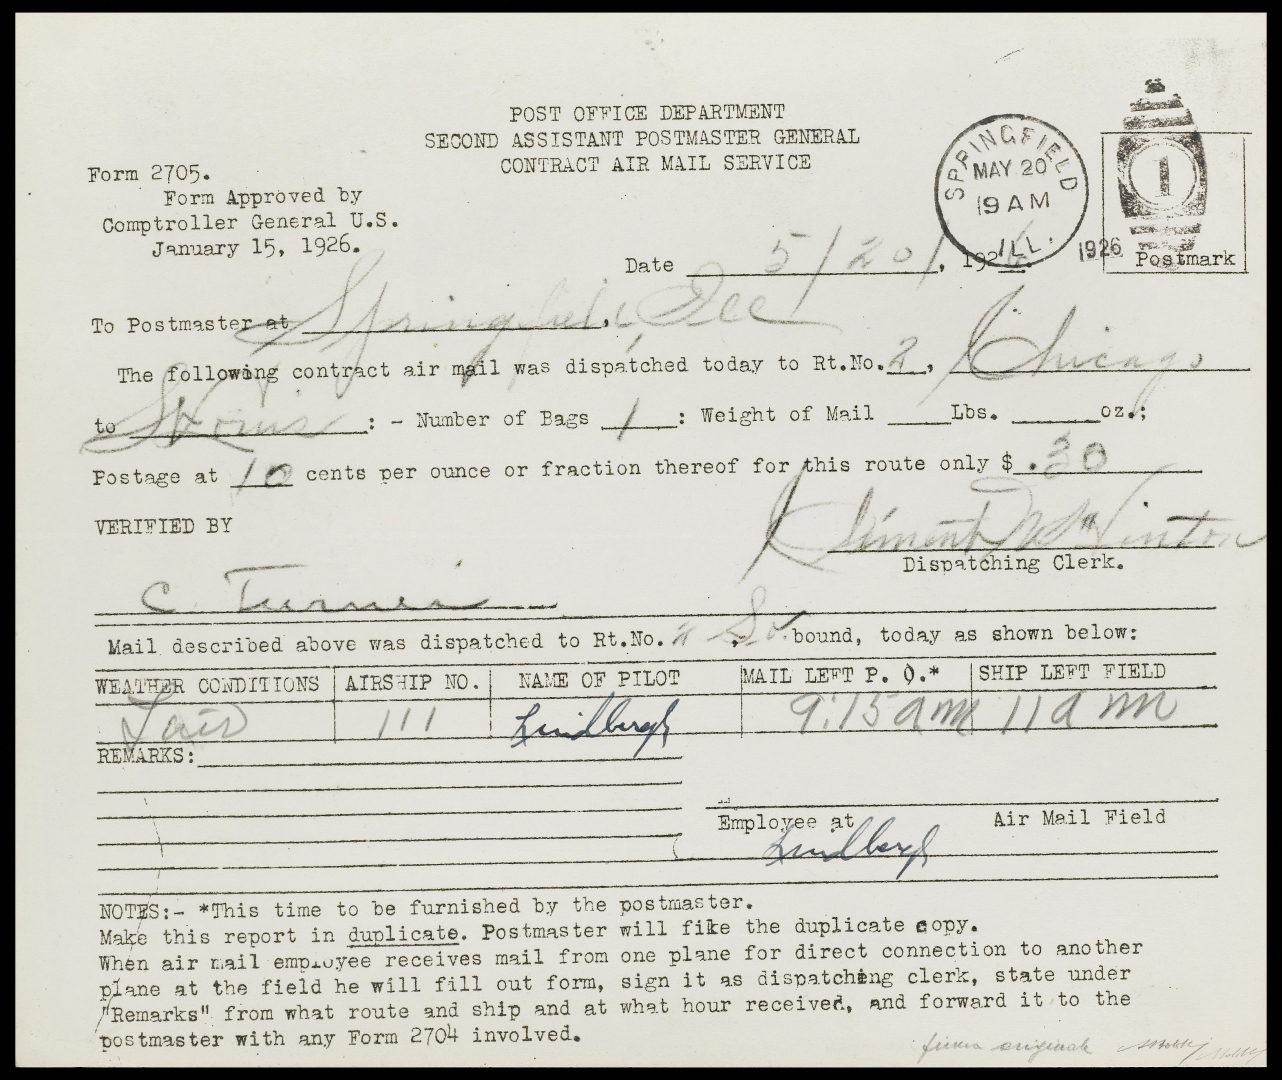 POST OFFICE DEPARTMENT
SECOND ASSISTANT POSTMASTER GENERAL
CONTRACT AIR MAIL SERVICE
Form 2705.
Form Approved by
Comptroller General U.S.
January 15, 1926.
SPRINGFIELD
MAY 20
9 AM
ILL.
1926
1
Postmark
Date 5/20/, 1926.
To Postmaster at Springfield, Ill
The following contract air mail was dispatched today to Rt.No. 2, Chicago
to St Louis : - Number of Bags 1 : Weight of Mail ____Lbs. ______oz.;
Postage at 10 cents per ounce or fraction thereof for this route only $ .30
VERIFIED BY
Dispatching Clerk.
C. Turner
Mail described above was dispatched to Rt.No. " , So. bound, today as shown below:
WEATHER CONDITIONS AIRSHIP NO. NAME OF PILOT MAIL LEFT P. O.* SHIP LEFT FIELD
Fair 111 Lindbergh 9:15 am 11 am
REMARKS:
Employee at Air Mail Field
Lindbergh
NOTES:- *This time to be furnished by the postmaster.
Make this report in duplicate. Postmaster will file the duplicate copy.
When air mail employee receives mail from one plane for direct connection to another
plane at the field he will fill out form, sign it as dispatching clerk, state under
"Remarks" from what route and ship and at what hour received, and forward it to the
postmaster with any Form 2704 involved.